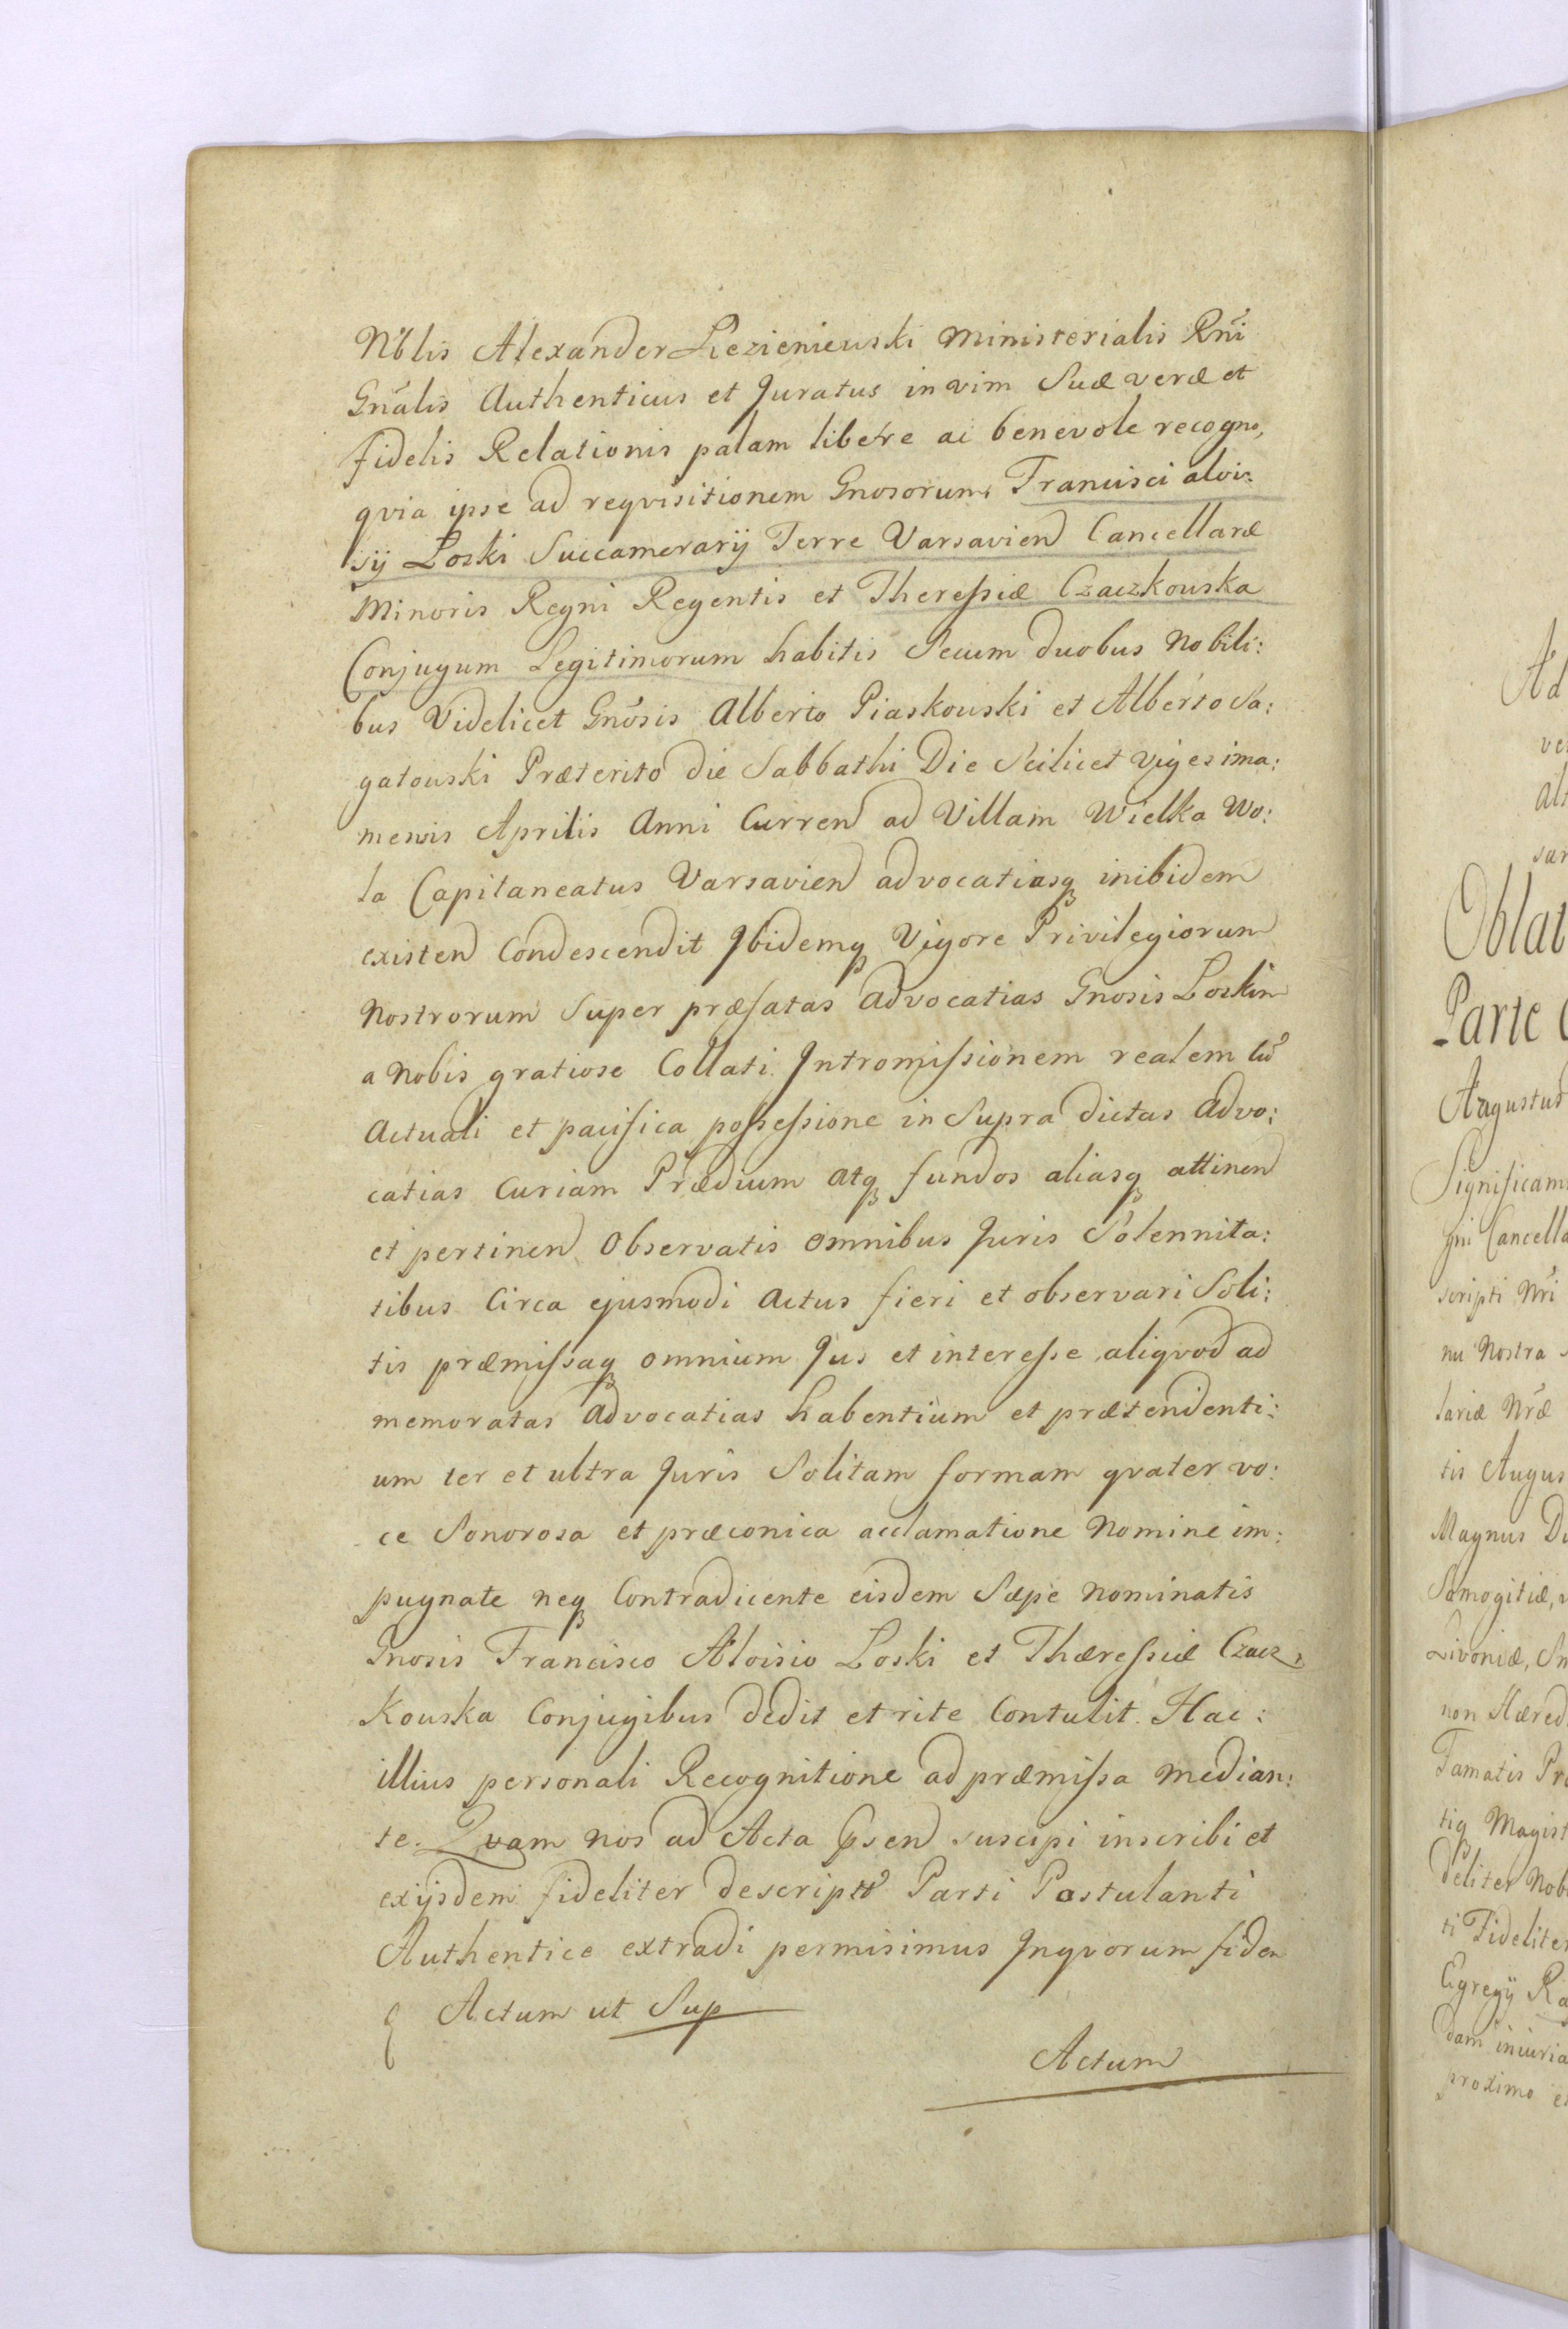 Nꝛblis Alexander Liezieniewski Ministerialis Rñi
Gnãlis Authenticus et Juratus in vim Suæ veræ et
fidelis Relationis palam libere ac benevole recogno,
qvia ipse ad reqvisitionem Gnosorum Francisci aloi:
sij Loski Succamerarij Terre Varsavien Cancellaræ
Minoris Regni Regentis et Theressiæ Czaczkouska
Conjugum Legitimorum habitis Secum duobus Nobili:
bus Videlicet Gnõsis Alberto Piaskouski et Alberto Sa:
gatouski Præterito die Sabbathi Die Scilicet vigesima:
mensis Aprilis Anni Curren ad Villam Wielka Wo:
la Capitaneatus Varsavien advocatiasq inibidem
existen Condescendit Ibidemq Vigore Privilegiorum
Nostrorum Super præfatas advocatias Gnosis Loskim
a Nobis gratiose Collati. Intromissionem realem cũ
Actuali et pacifica possessione in Supra dictas Advo:
catias Curiam Prædium atq fundos aliasq attinen
et pertinen Observatis omnibus Juris Solennita:
tibus Circa ejusmodi Actus fieri et observari Soli:
tis præmissaq omnium Jus et interesse aliqvod ad
memoratas advocatias habentium et prætendenti:
um ter et ultra Juris Solitam formam qvater vo:
ce Sonorosa et præconica acclamatione Nomine im:
pugnate neq Contradicente eisdem Sæpe nominatis
Gnosis Francisco Aloisio Loski et Thæressiæ Czacz:
Kouska Conjugibus dedit et rite Contulit. Hac:
illius personali Recognitione ad præmissa Median:
te. Qvam nos ad Acta Psen suscipi inscribi et
exijsdem fideliter descriptũ Parti Postulanti
Authentice extradi permisimus Inqvorum fidem
Actum ut Sup
Actum
Ad
Oblat
Parte
Augustus
Significam
gni Cancella
scripti Nri
nu Nostra
lariæ Nræ
tis Augus
Magnus Du
Samogitiæ,
Livoniæ, Sm
non Hæred
Famatis Pro
tiq Magist
deliter Nob
ti Fideliter
Egregij Ra
dam iniuria
proximo et